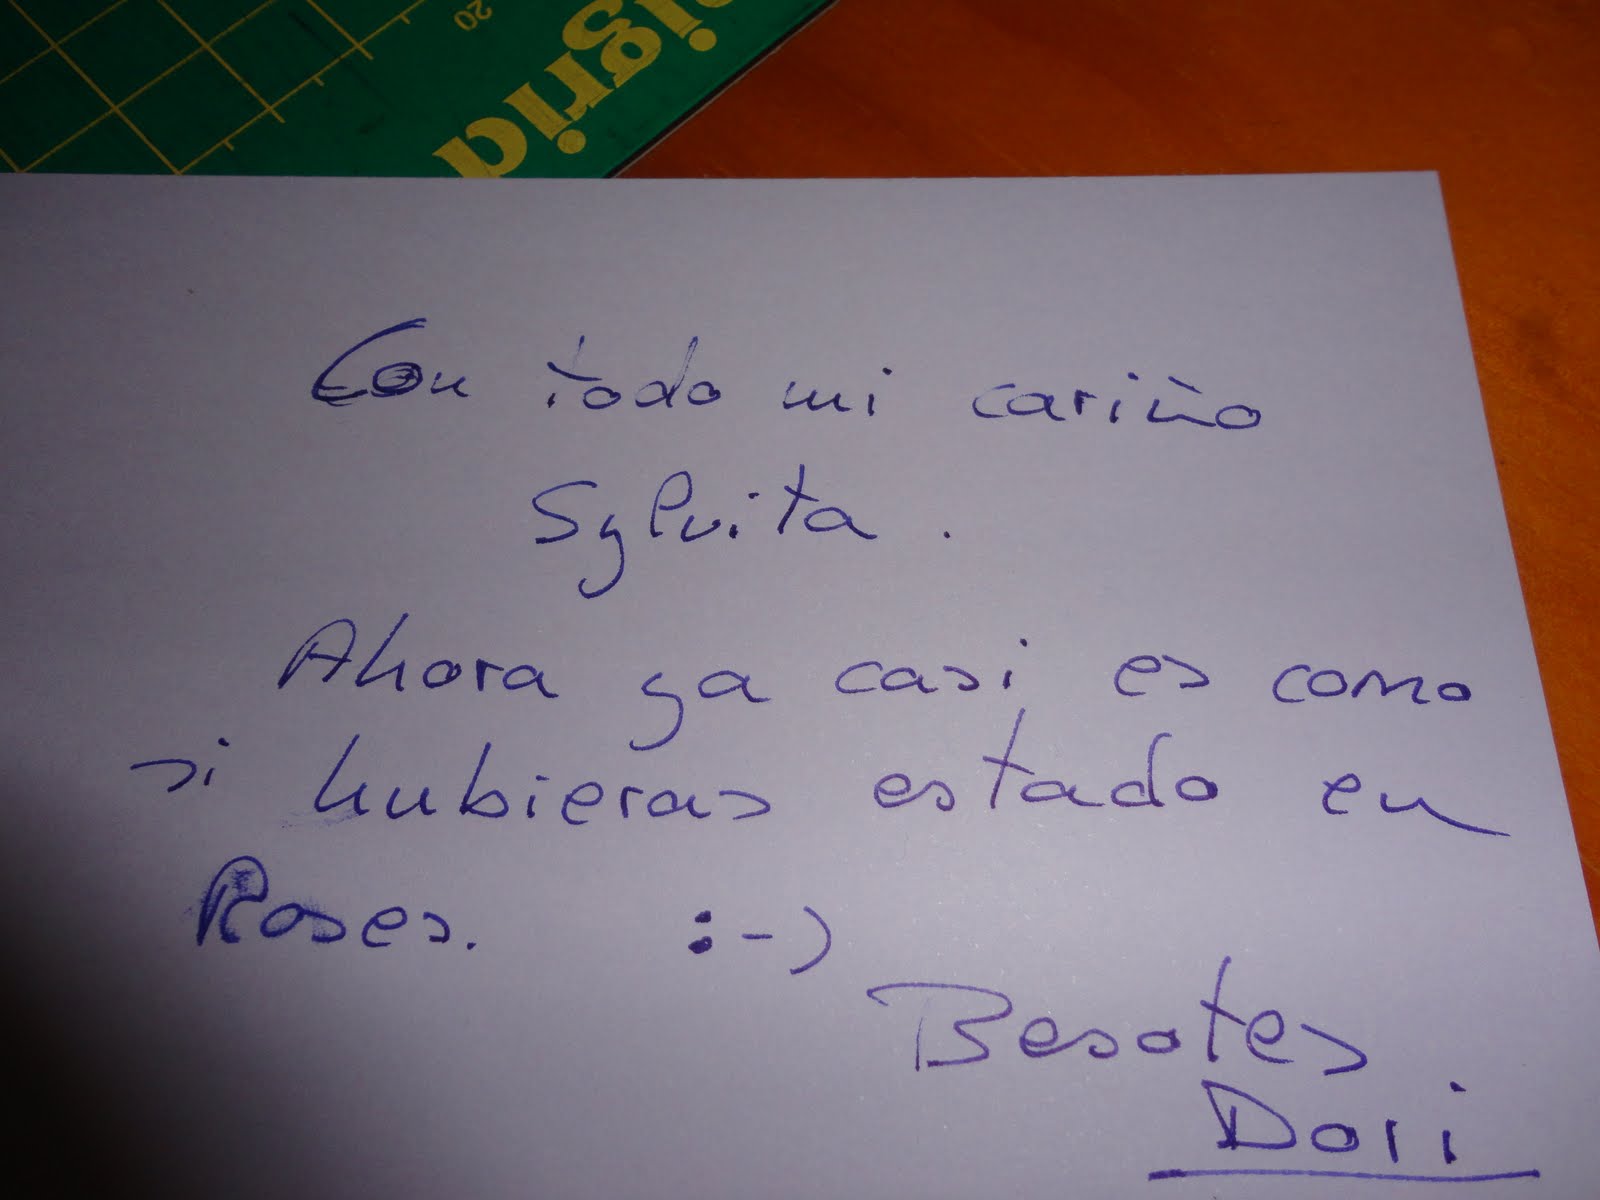 20
igria
Con todo mi cariño
Sylvita.
Ahora ya casi es como
si hubieras estado en
Roses. :-)
Besotes
Dori